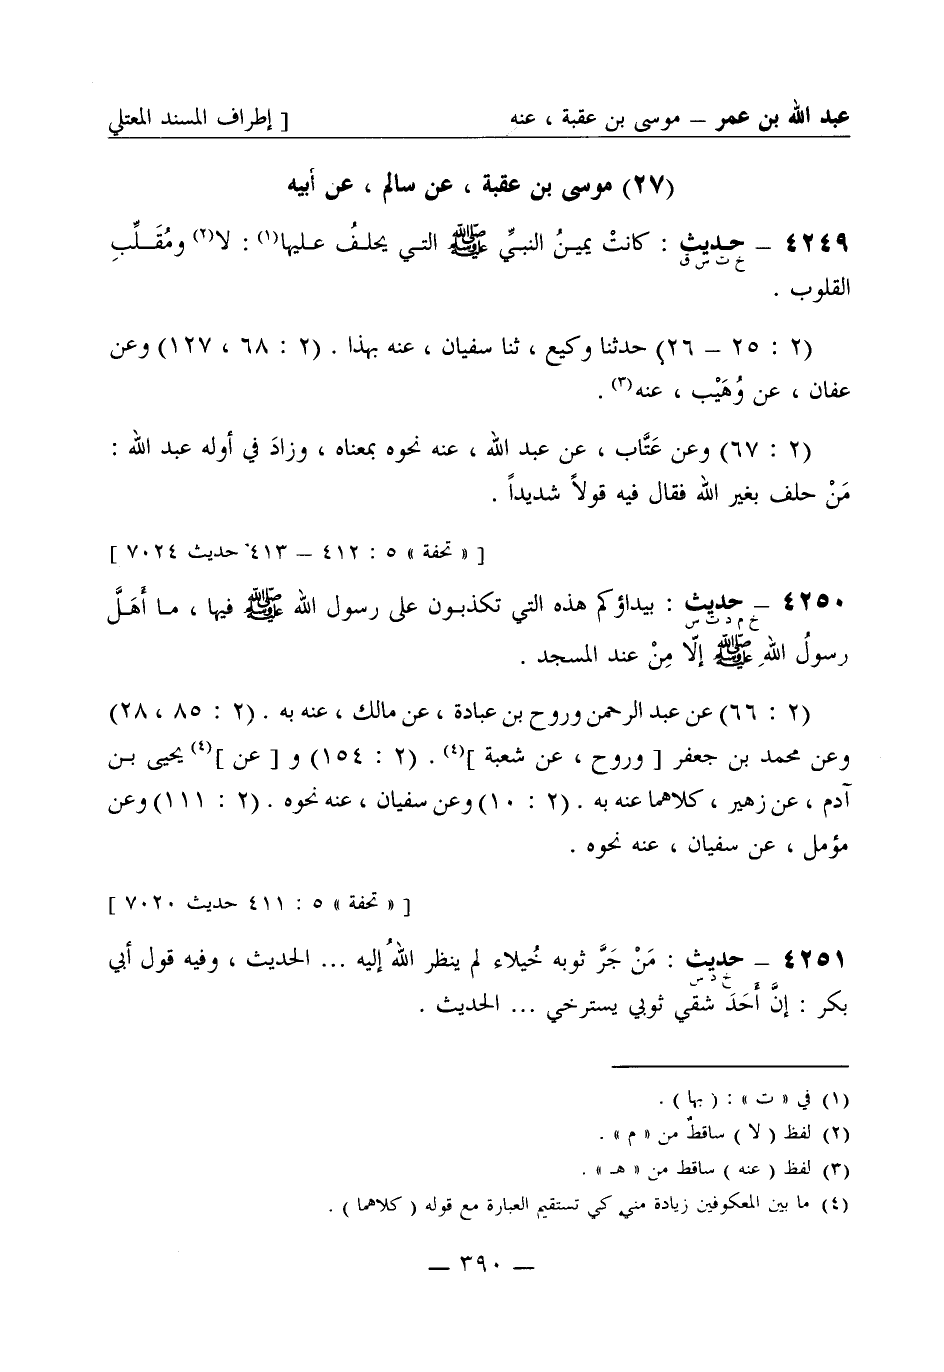 عبد الله بن عمر – موسى بن عقبة ، عنه [ إطراف المسند المعتلي
(٢٧) موسى بن عقبة ، عن سالم ، عن أبيه
٤٢٤٩ – حديث : كانتْ يمينُ النبيِّ ﷺ التـي يحلفُ عليها(١) : لا(٢) ومُقَـلِّبِ
خ ت س ق
القلوب .
(٢ : ٢٥ – ٢٦) حدثنا وكيع ، ثنا سفيان ، عنه بهذا . (٢ : ٦٨ ، ١٢٧) وعن
عفان ، عن وُهَيْب ، عنه(٣) .
(٢ : ٦٧) وعن عَتَّاب ، عن عبد الله ، عنه نحوه بمعناه ، وزادَ في أوله عبد الله :
مَنْ حلف بغير الله فقال فيه قولاً شديداً .
[ « تحفة » ٥ : ٤١٢ – ٤١٣ حديث ٧٠٢٤ ]
٤٢٥٠ – حديث : بيداؤكم هذه التي تكذبـون على رسول الله ﷺ فيها ، مـا أَهَـلَّ
خ م د ت س
رسولُ اللهِ ﷺ إلّا مِنْ عند المسجد .
(٢ : ٦٦) عن عبد الرحمن وروح بن عبادة ، عن مالك ، عنه به . (٢ : ٨٥ ، ٢٨)
وعن محمد بن جعفر [ وروح ، عن شعبة ](٤) . (٢ : ١٥٤) و [ عن ](٤) يحيى بـن
آدم ، عن زهير ، كلاهما عنه به . (٢ : ١٠) وعن سفيان ، عنه نحوه . (٢ : ١١١) وعن
مؤمل ، عن سفيان ، عنه نحوه .
[ « تحفة » ٥ : ٤١١ حديث ٧٠٢٠ ]
٤٢٥١ – حديث : مَنْ جَرَّ ثوبه خُيلاء لم ينظر اللهُ إليه ... الحديث ، وفيه قول أبي
خ د س
بكر : إنَّ أَحَدَ شقي ثوبي يسترخي ... الحديث .
(١) في « ت » : ( بها ) .
(٢) لفظ ( لا ) ساقطٌ من « م » .
(٣) لفظ ( عنه ) ساقط من « هـ » .
(٤) ما بين المعكوفين زيادة مني كي تستقيم العبارة مع قوله ( كلاهما ) .
– ٣٩٠ –